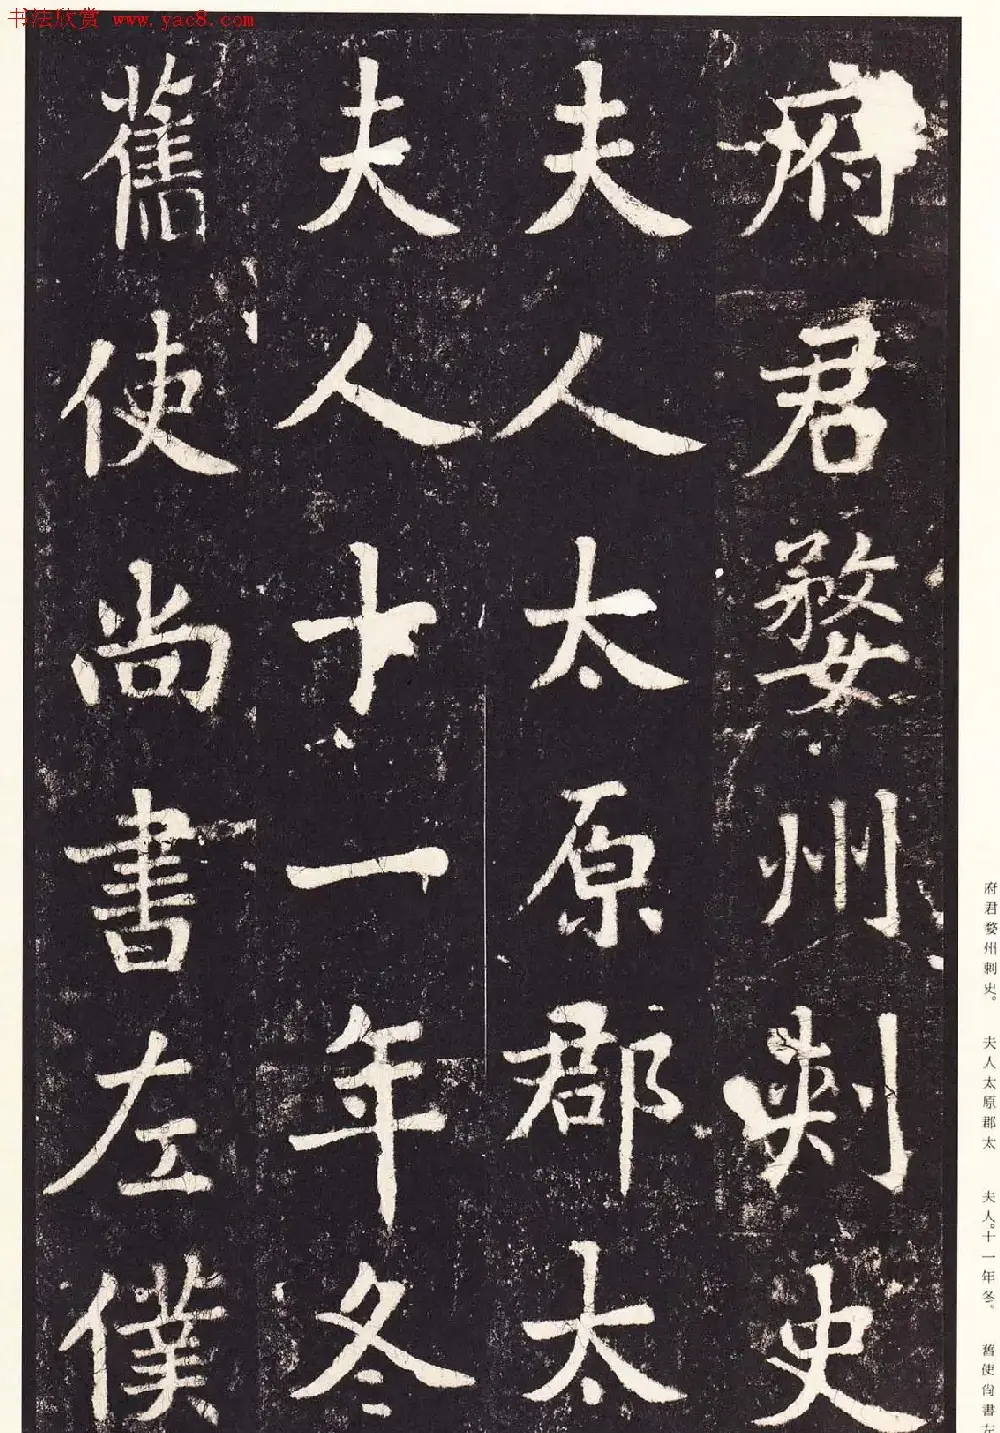 书法欣赏 www.yac8.com
府君婺州刺史
夫人太原郡太
夫人十一年冬
舊使尚書左僕
府君婺州刺史。
夫人太原郡太
夫人。十一年冬。
舊使尚書左